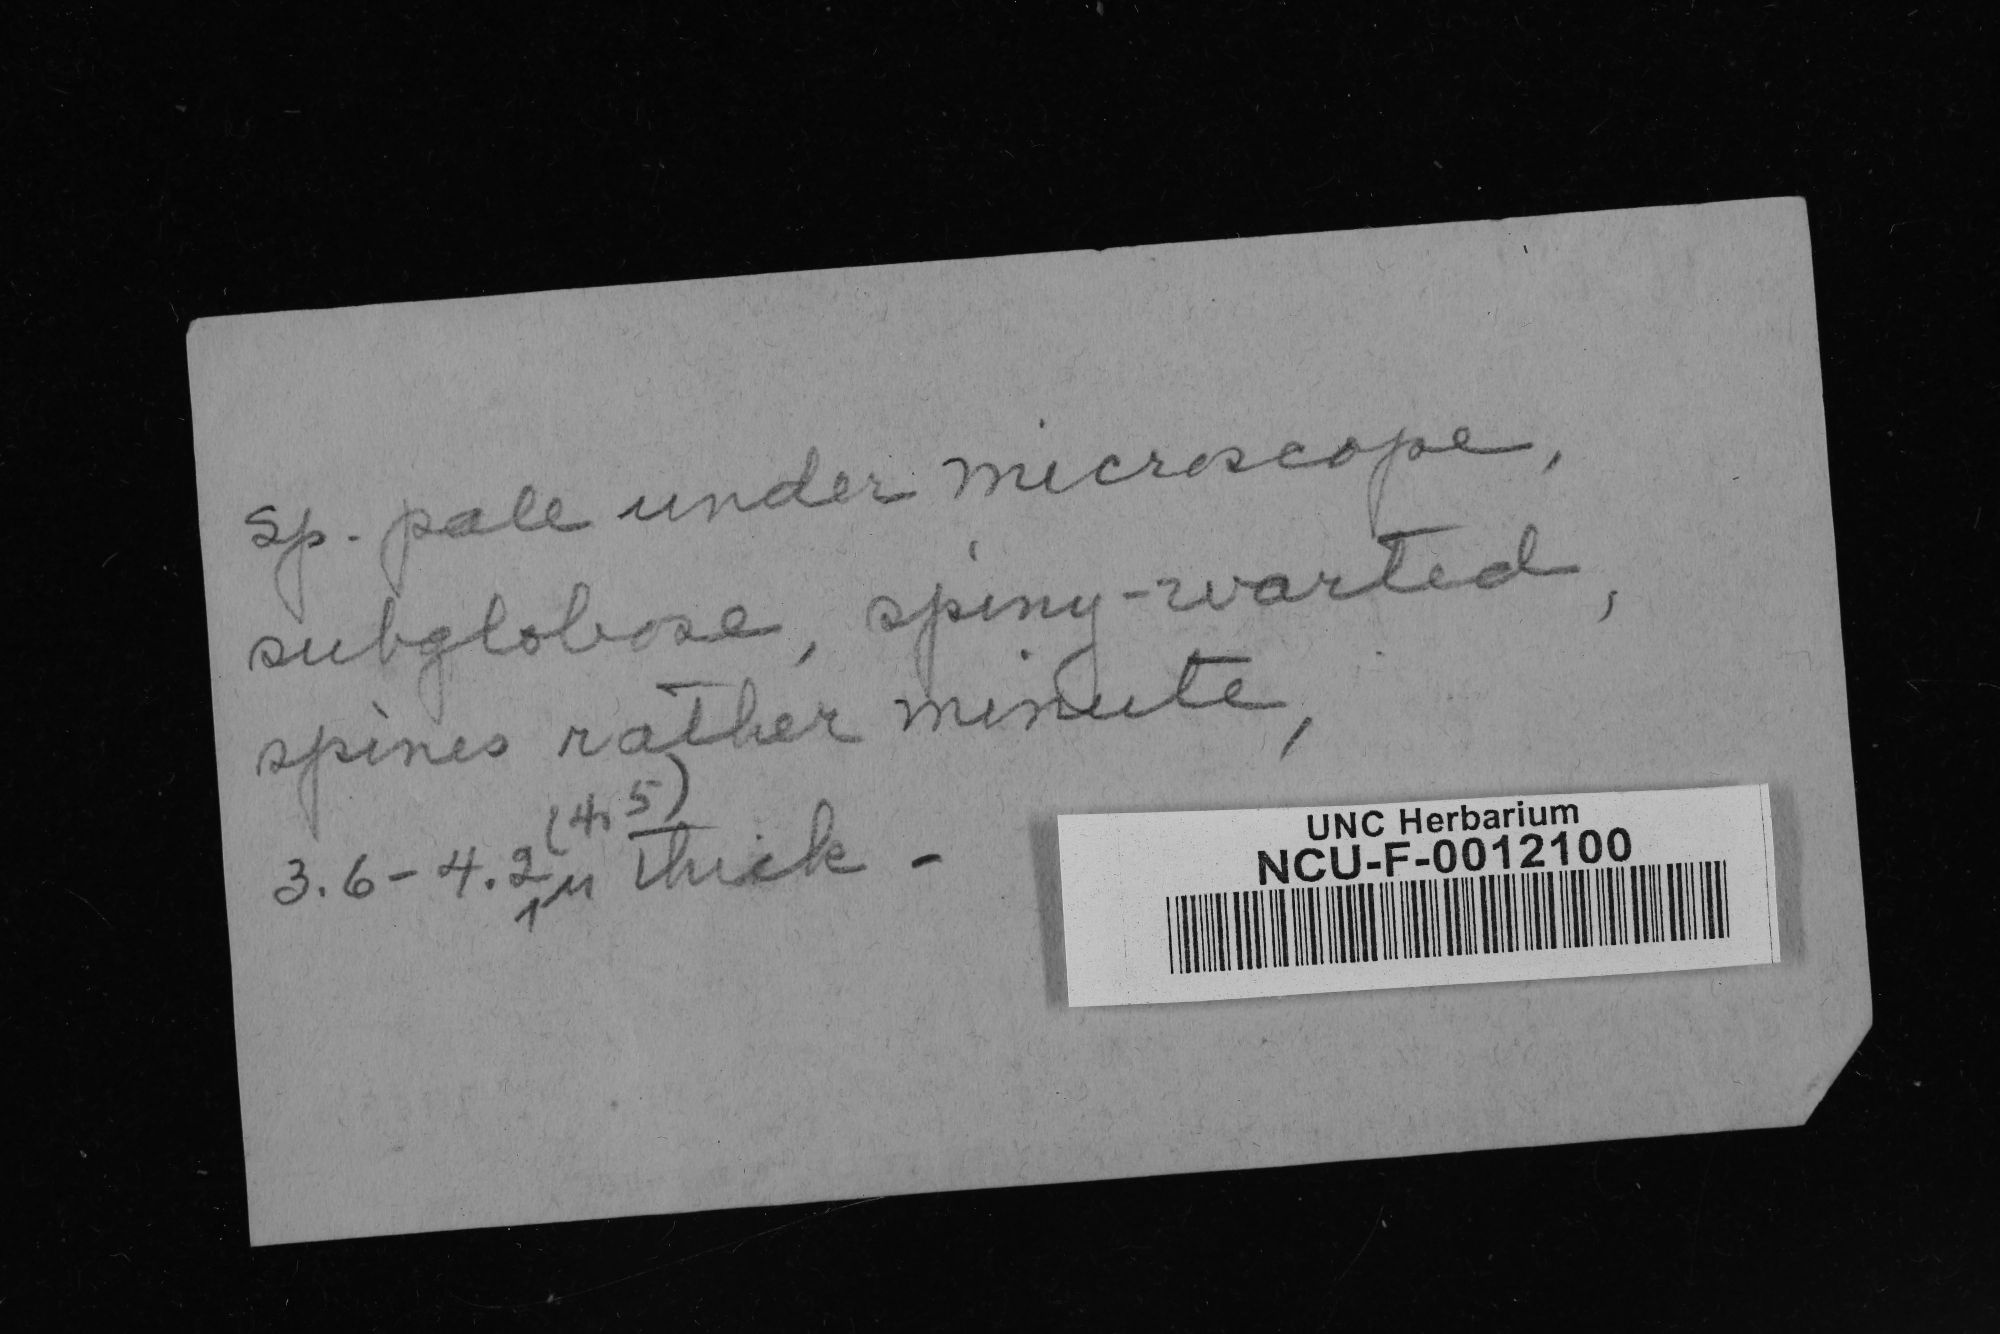 sp. pale under microscope,
subglobose, spiny-warted,
spines rather minute,
3.6-4.2 (4.5) µ thick -
UNC Herbarium
NCU-F-0012100